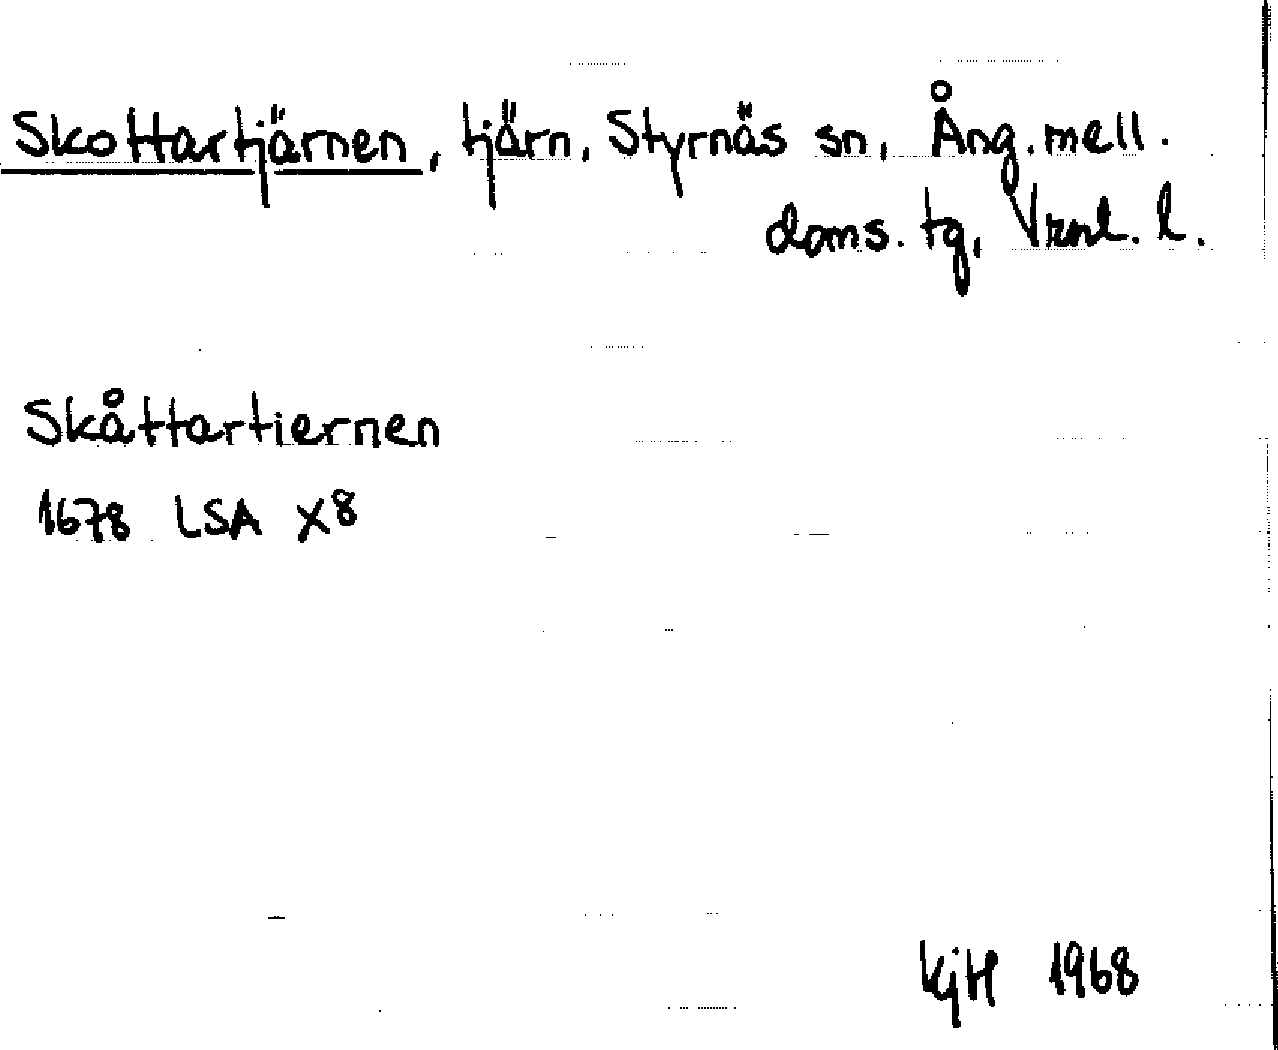 Skottartjärnen, tjärn, Styrnäs sn, Ång. mell.
doms. tg, Vrnl. l.
Skåttartiernen
1678 LSA X8
KjH 1968